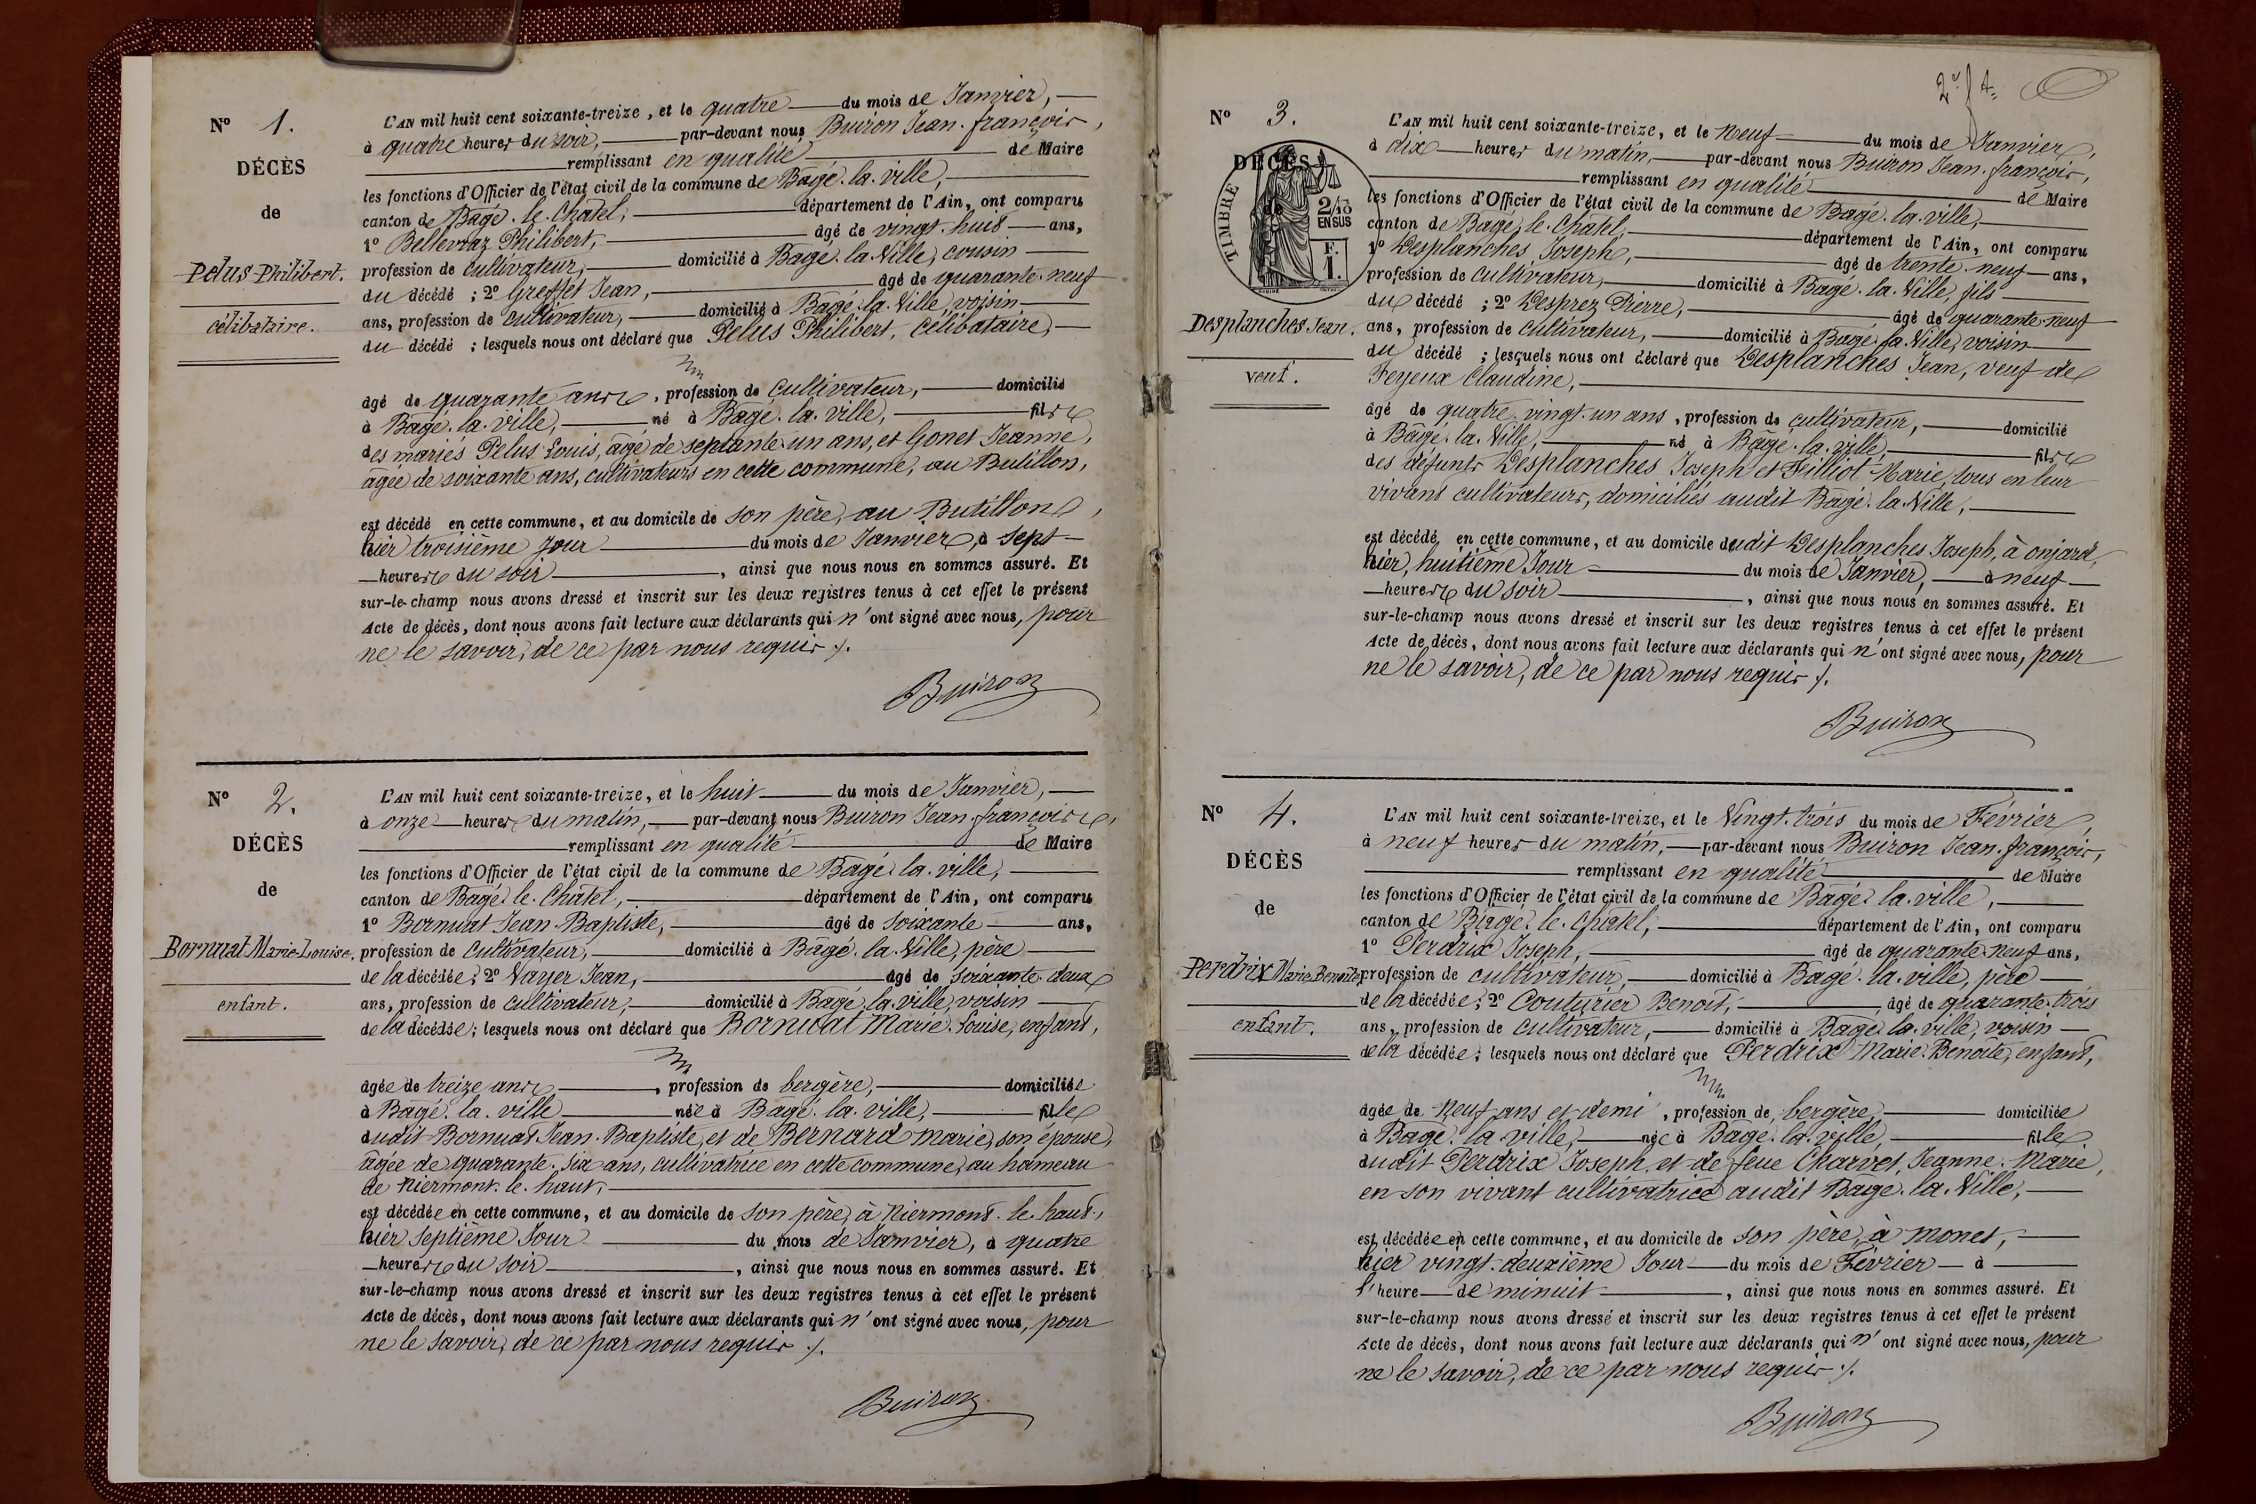 Nº 1.
DÉCÈS
de
Pelus Philibert.
célibataire.
L'AN mil huit cent soixante-treize, et le quatre du mois de Janvier,
à quatre heures du soir, par-devant nous Buiron Jean-françois,
remplissant en qualité de Maire
les fonctions d'Officier de l'état civil de la commune de Bagé-la-ville,
canton de Bagé-le-Châtel, département de l'Ain, ont comparu
1º Bellevraz Philibert, âgé de vingt-huit ans,
profession de cultivateur, domicilié à Bagé-la-Ville, cousin
du décédé ; 2º Greffet Jean, âgé de quarante-neuf
ans, profession de cultivateur, domicilié à Bâgé-la-Ville, voisin
du décédé ; lesquels nous ont déclaré que Pelus Philibert, célibataire,
âgé de quarante ans, profession de cultivateur, domicilié
à Bagé-la-ville, né à Bagé-la-ville, fils
des mariés Pelus Louis, âgé de septante-un ans, et Gonet Jeanne,
âgée de soixante ans, cultivateurs en cette commune, au Butillon,
est décédé en cette commune, et au domicile de son père, au Butillon,
hier troisième jour du mois de Janvier, à sept
heures du soir, ainsi que nous nous en sommes assuré. Et
sur-le-champ nous avons dressé et inscrit sur les deux registres tenus à cet effet le présent
Acte de décès, dont nous avons fait lecture aux déclarants qui n'ont signé avec nous, pour
ne le savoir, de ce par nous requis ./.
Buiron
Nº 2.
DÉCÈS
de
Bornuat Marie-Louise.
enfant.
L'AN mil huit cent soixante-treize, et le huit du mois de Janvier,
à onze heures du matin, par-devant nous Buiron Jean-françois,
remplissant en qualité de Maire
les fonctions d'Officier de l'état civil de la commune de Bagé-la-ville,
canton de Bagé-le-Châtel, département de l'Ain, ont comparu
1º Bornuat Jean-Baptiste, âgé de soixante ans,
profession de cultivateur, domicilié à Bâgé-la-Ville, père
de la décédée ; 2º Vayer Jean, âgé de soixante-deux
ans, profession de cultivateur, domicilié à Bagé-la-ville, voisin
de la décédée ; lesquels nous ont déclaré que Bornuat Marie-Louise, enfant,
âgée de treize ans, profession de bergère, domiciliée
à Bagé-la-ville née à Bagé-la-ville, fille
dudit Bornuat Jean-Baptiste, et de Bernard Marie, son épouse,
âgée de quarante-six ans, cultivatrice en cette commune, au hameau
de Niermont-le-haut,
est décédée en cette commune, et au domicile de son père, à Niermont-le-haut,
hier septième Jour du mois de Janvier, à quatre
heures du soir, ainsi que nous nous en sommes assuré. Et
sur-le-champ nous avons dressé et inscrit sur les deux registres tenus à cet effet le présent
Acte de décès, dont nous avons fait lecture aux déclarants qui n'ont signé avec nous, pour
ne le savoir, de ce par nous requis ./.
Buiron
Nº 3.
DÉCÈS
de
TIMBRE
2/10
EN SUS
F.
1.
Desplanches Jean.
veuf.
L'AN mil huit cent soixante-treize, et le neuf du mois de Janvier,
à dix heures du matin, par-devant nous Buiron Jean-françois,
remplissant en qualité de Maire
les fonctions d'Officier de l'état civil de la commune de Bagé-la-ville,
canton de Bagé-le-Châtel, département de l'Ain, ont comparu
1º Desplanches Joseph, âgé de trente-neuf ans,
profession de cultivateur, domicilié à Bagé-la-Ville, fils
du décédé ; 2º Desprez Pierre, âgé de quarante-neuf
ans, profession de cultivateur, domicilié à Bagé-la-Ville, voisin
du décédé ; lesquels nous ont déclaré que Desplanches Jean, veuf de
Feyeux Claudine,
âgé de quatre-vingt-un ans, profession de cultivateur, domicilié
à Bâgé-la-Ville, né à Bagé-la-ville, fils
des défunts Desplanches Joseph et Filliot Marie, tous en leur
vivant cultivateurs, domiciliés audit Bagé-la-Ville,
est décédé en cette commune, et au domicile dudit Desplanches Joseph, à onjard,
hier, huitième Jour du mois de Janvier, à neuf
heures du soir, ainsi que nous nous en sommes assuré. Et
sur-le-champ nous avons dressé et inscrit sur les deux registres tenus à cet effet le présent
Acte de décès, dont nous avons fait lecture aux déclarants qui n'ont signé avec nous, pour
ne le savoir, de ce par nous requis ./.
Buiron
Nº 4.
DÉCÈS
de
Perdrix Marie Benoîte
enfant.
L'AN mil huit cent soixante-treize, et le Vingt-trois du mois de Février,
à neuf heures du matin, par-devant nous Buiron Jean-françois,
remplissant en qualité de Maire
les fonctions d'Officier de l'état civil de la commune de Bagé-la-ville,
canton de Bâgé-le-Châtel, département de l'Ain, ont comparu
1º Perdrix Joseph, âgé de quarante-neuf ans,
profession de cultivateur, domicilié à Bagé-la-ville, père
de la décédée ; 2º Couturier Benoit, âgé de quarante-trois
ans, profession de cultivateur, domicilié à Bagé-la-ville, voisin
de la décédée ; lesquels nous ont déclaré que Perdrix Marie-Benoîte, enfant,
âgée de neuf ans et demi, profession de bergère, domiciliée
à Bagé-la-ville, née à Bagé-la-ville, fille
dudit Perdrix Joseph, et de feue Charvet Jeanne-Marie,
en son vivant cultivatrice audit Bagé-la-Ville,
est décédée en cette commune, et au domicile de son père, à monet,
hier vingt-deuxième Jour du mois de Février à
l'heure de minuit, ainsi que nous nous en sommes assuré. Et
sur-le-champ nous avons dressé et inscrit sur les deux registres tenus à cet effet le présent
Acte de décès, dont nous avons fait lecture aux déclarants qui n'ont signé avec nous, pour
ne le savoir, de ce par nous requis ./.
Buiron